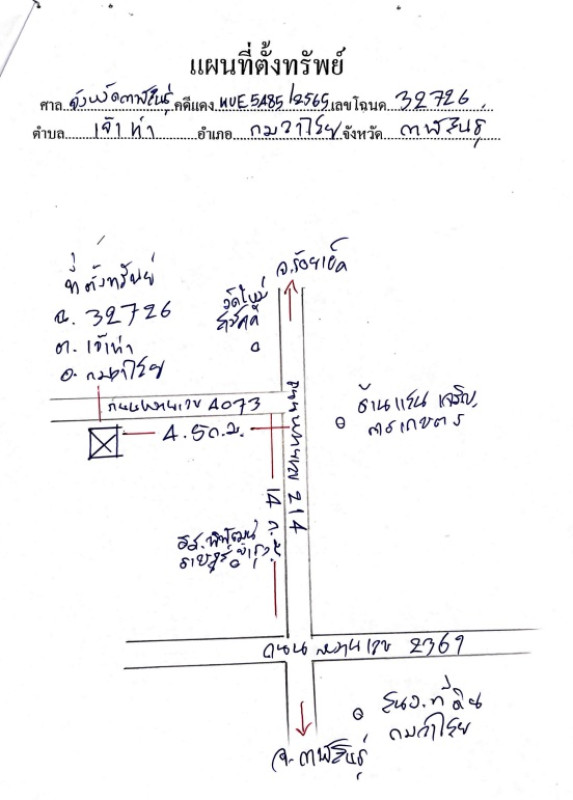 แผนที่ตั้งทรัพย์
ศาล จังหวัดกาฬสินธุ์ คดีแดง ผบE5485/2565 เลขโฉนด 32726
ตำบล เจ้าท่า อำเภอ กมลาไสย จังหวัด กาฬสินธุ์
จ.ร้อยเอ็ด
ที่ตั้งทรัพย์
ฉ. 32726
ต. เจ้าท่า
อ. กมลาไสย
วัดใหม่
สามัคคี
ถนนหมายเลข 4073
4.5 ก.ม.
ถนนหมายเลข 214
ร้านแสนเจริญ
การเกษตร
14 ก.ม.
รร.พิพัฒน์
ราษฎร์บำรุง
ถนนหมายเลข 2369
สนง.ที่ดิน
กมลาไสย
จ.กาฬสินธุ์